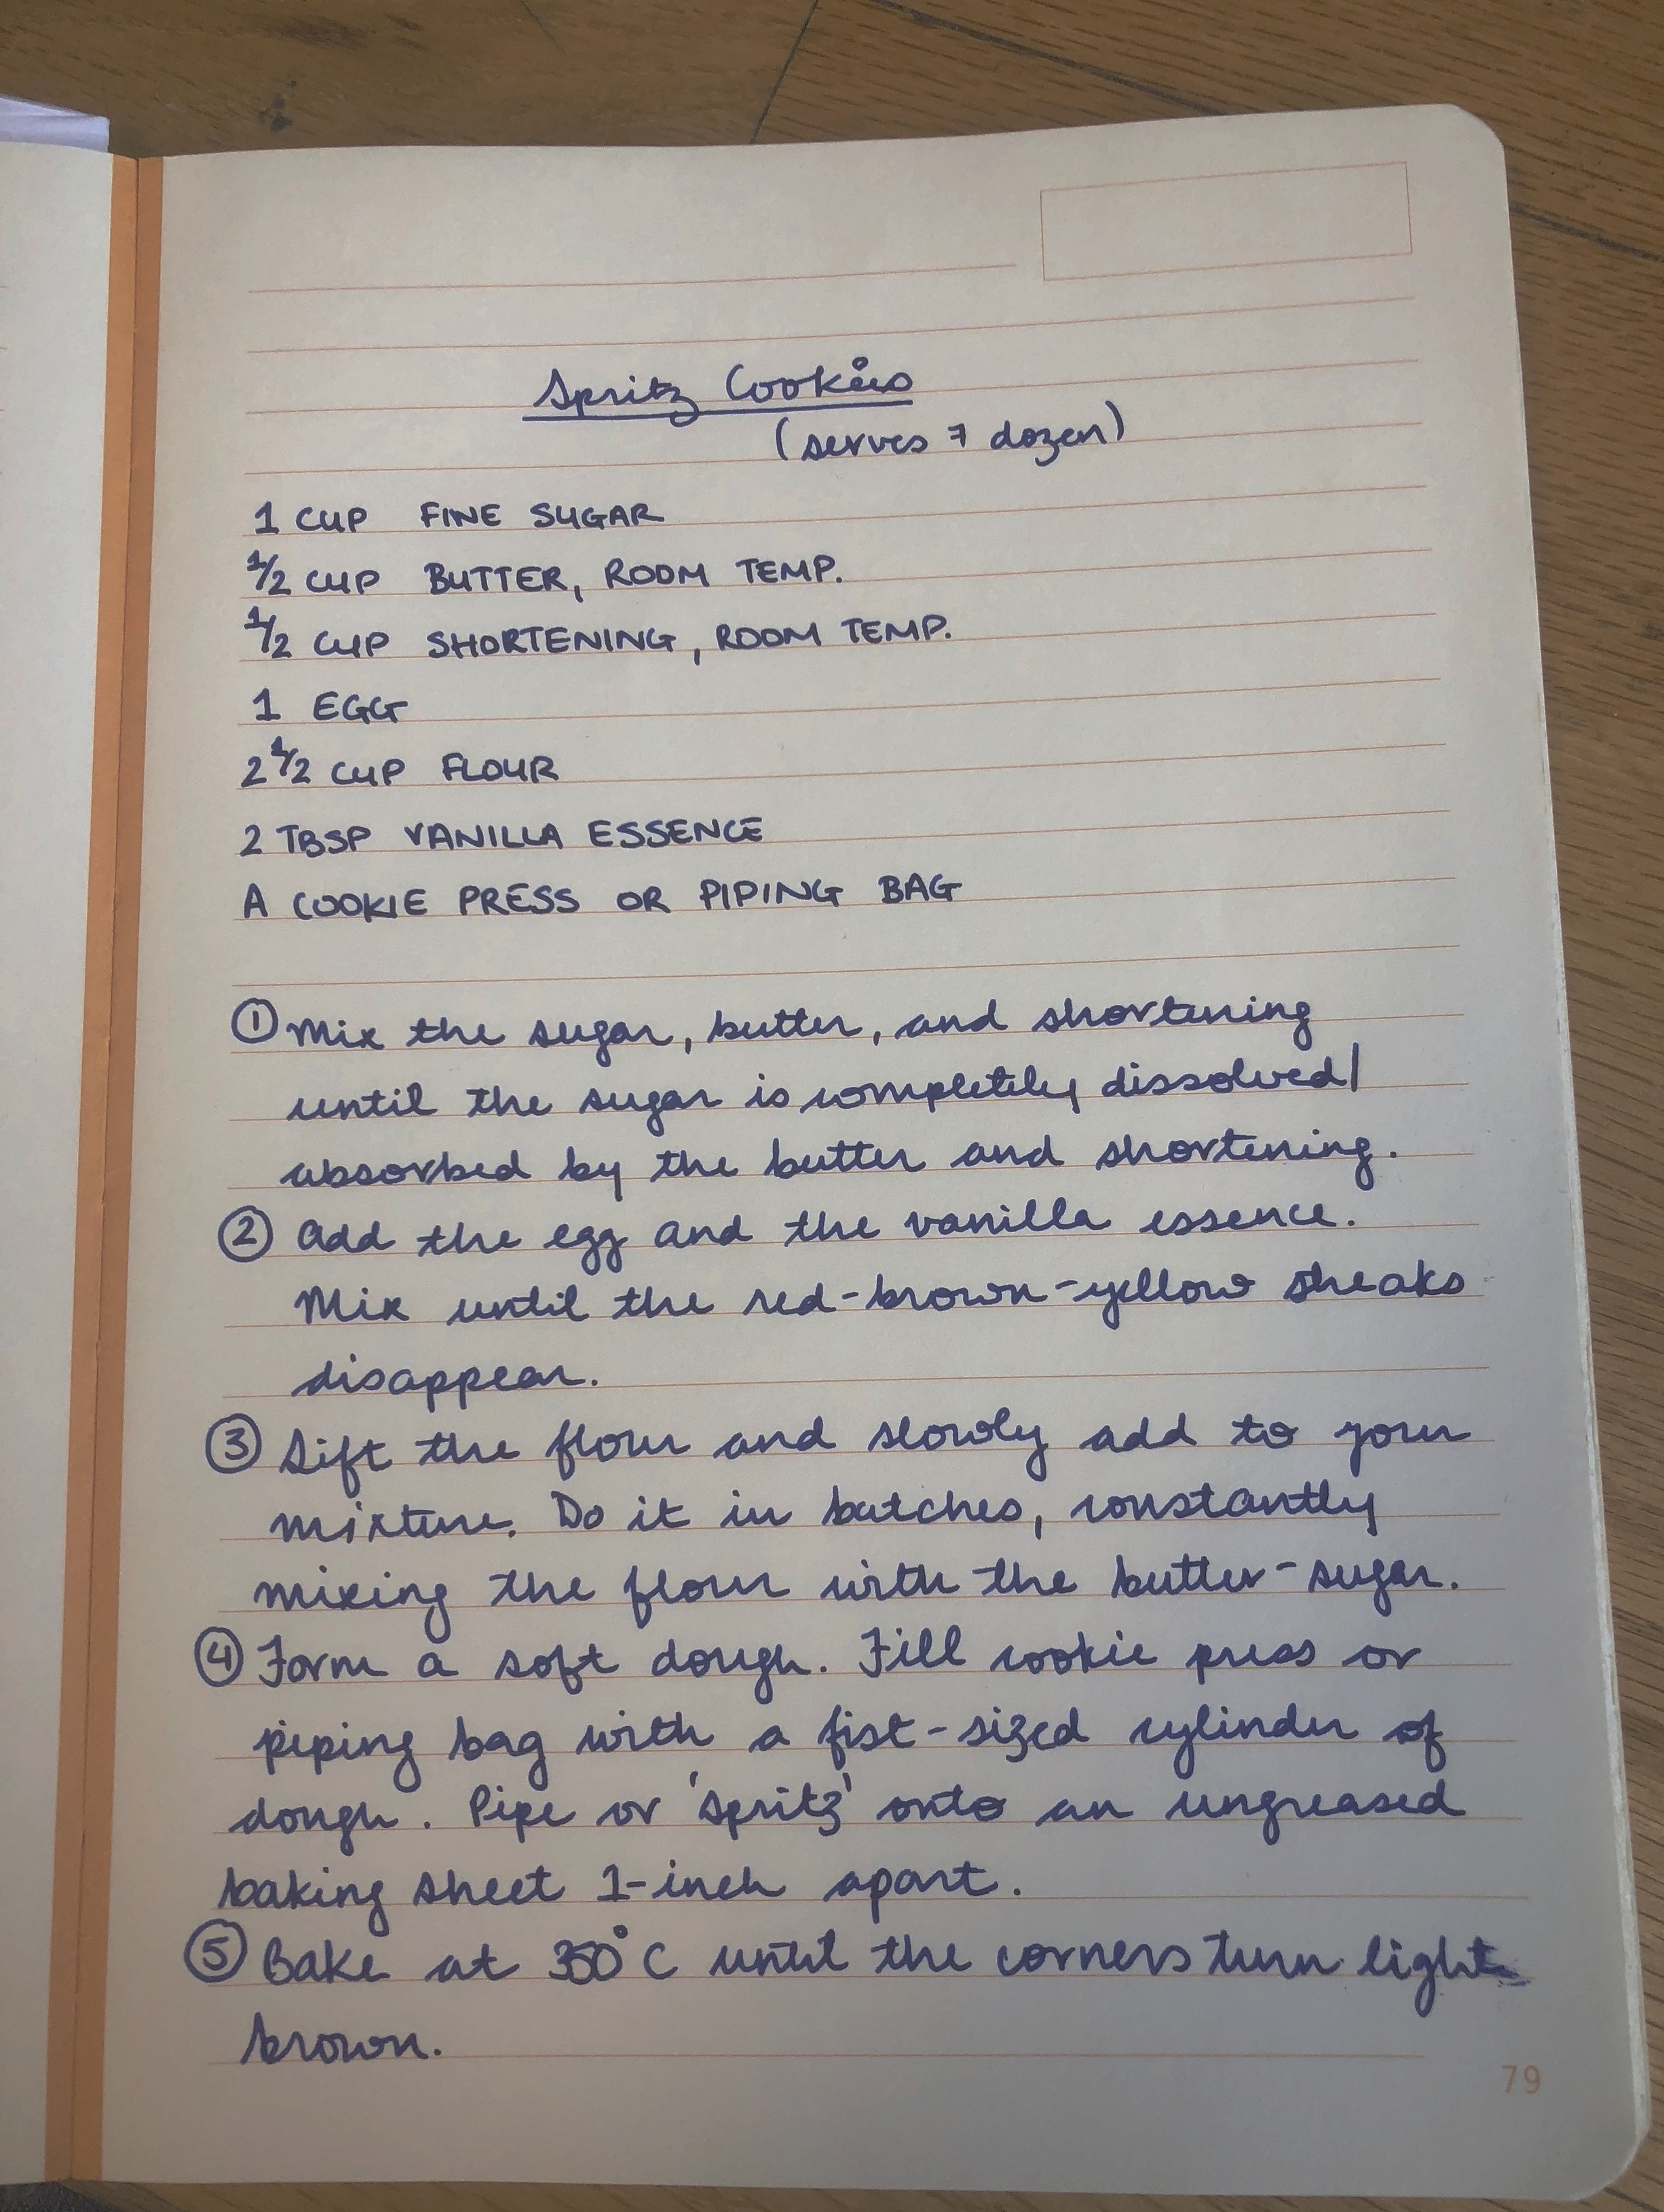 Spritz Cookies
(serves 7 dozen)
1 CUP FINE SUGAR
1/2 CUP BUTTER, ROOM TEMP.
1/2 CUP SHORTENING, ROOM TEMP.
1 EGG
2 1/2 CUP FLOUR
2 TBSP VANILLA ESSENCE
A COOKIE PRESS OR PIPING BAG
① Mix the sugar, butter, and shortening
until the sugar is completely dissolved/
absorbed by the butter and shortening.
② Add the egg and the vanilla essence.
Mix until the red-brown-yellow streaks
disappear.
③ Sift the flour and slowly add to your
mixture. Do it in batches, constantly
mixing the flour with the butter-sugar.
④ Form a soft dough. Fill cookie press or
piping bag with a fist-sized cylinder of
dough. Pipe or 'spritz' onto an ungreased
baking sheet 1-inch apart.
⑤ Bake at 350°C until the corners turn light
brown.
79